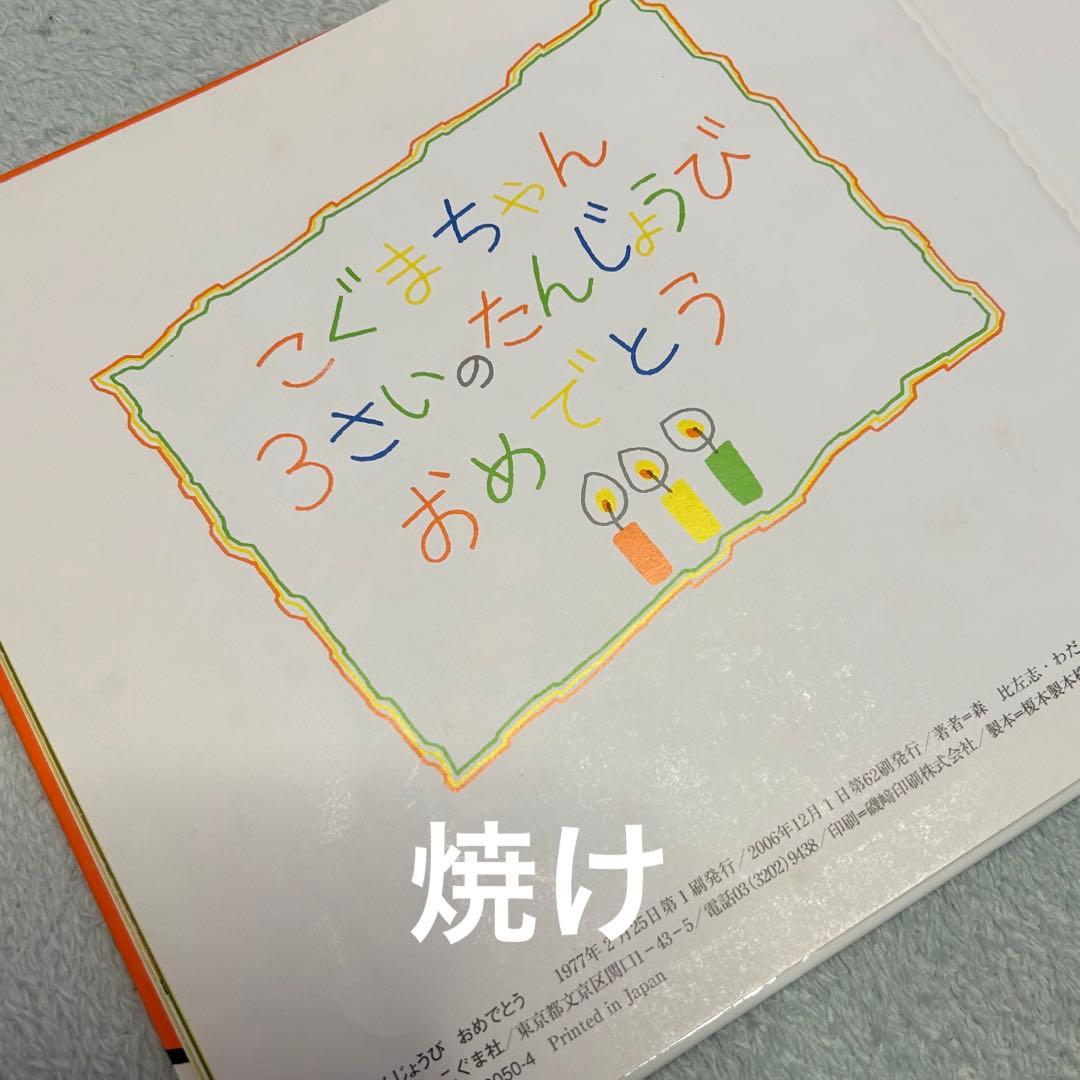 こぐまちゃん
3さいのたんじょうび
おめでとう
焼け
じょうび おめでとう 1977年2月25日第1刷発行/2006年12月1日第62刷発行/著者=森 比左志・わだ
ぐま社/東京都文京区関口1-43-5/電話03(3202)9438/印刷=磯﨑印刷株式会社/製本=榎本製本
050-4 Printed in Japan